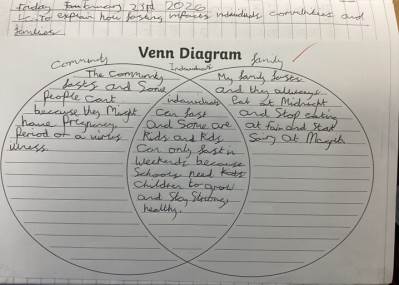 Friday January 23rd 2026
L.C. To explain how fasting impacts individuals communities and
families
Venn Diagram
Community
Individual
family
The Community
fasts and Some
People Cant
because they Might
have Pregnancy
Period or a virus
illness.
individuals
Can fast
And Some are
Kids and Kids
Can only fast in
Weekends because
Schools need Kids
Children to grow
and Stay Strong,
healthy.
My family fasts
and they always
Eat at Midnight
and Stop eating
at fajr and Start
at Magrib